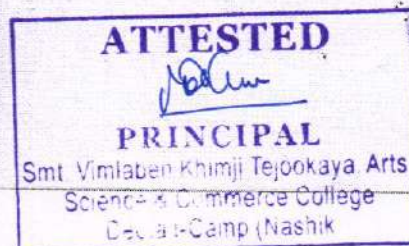 ATTESTED
PRINCIPAL
Smt. Vimlaben Khimji Tejookaya Arts
Science & Commerce College
Camp (Nashik